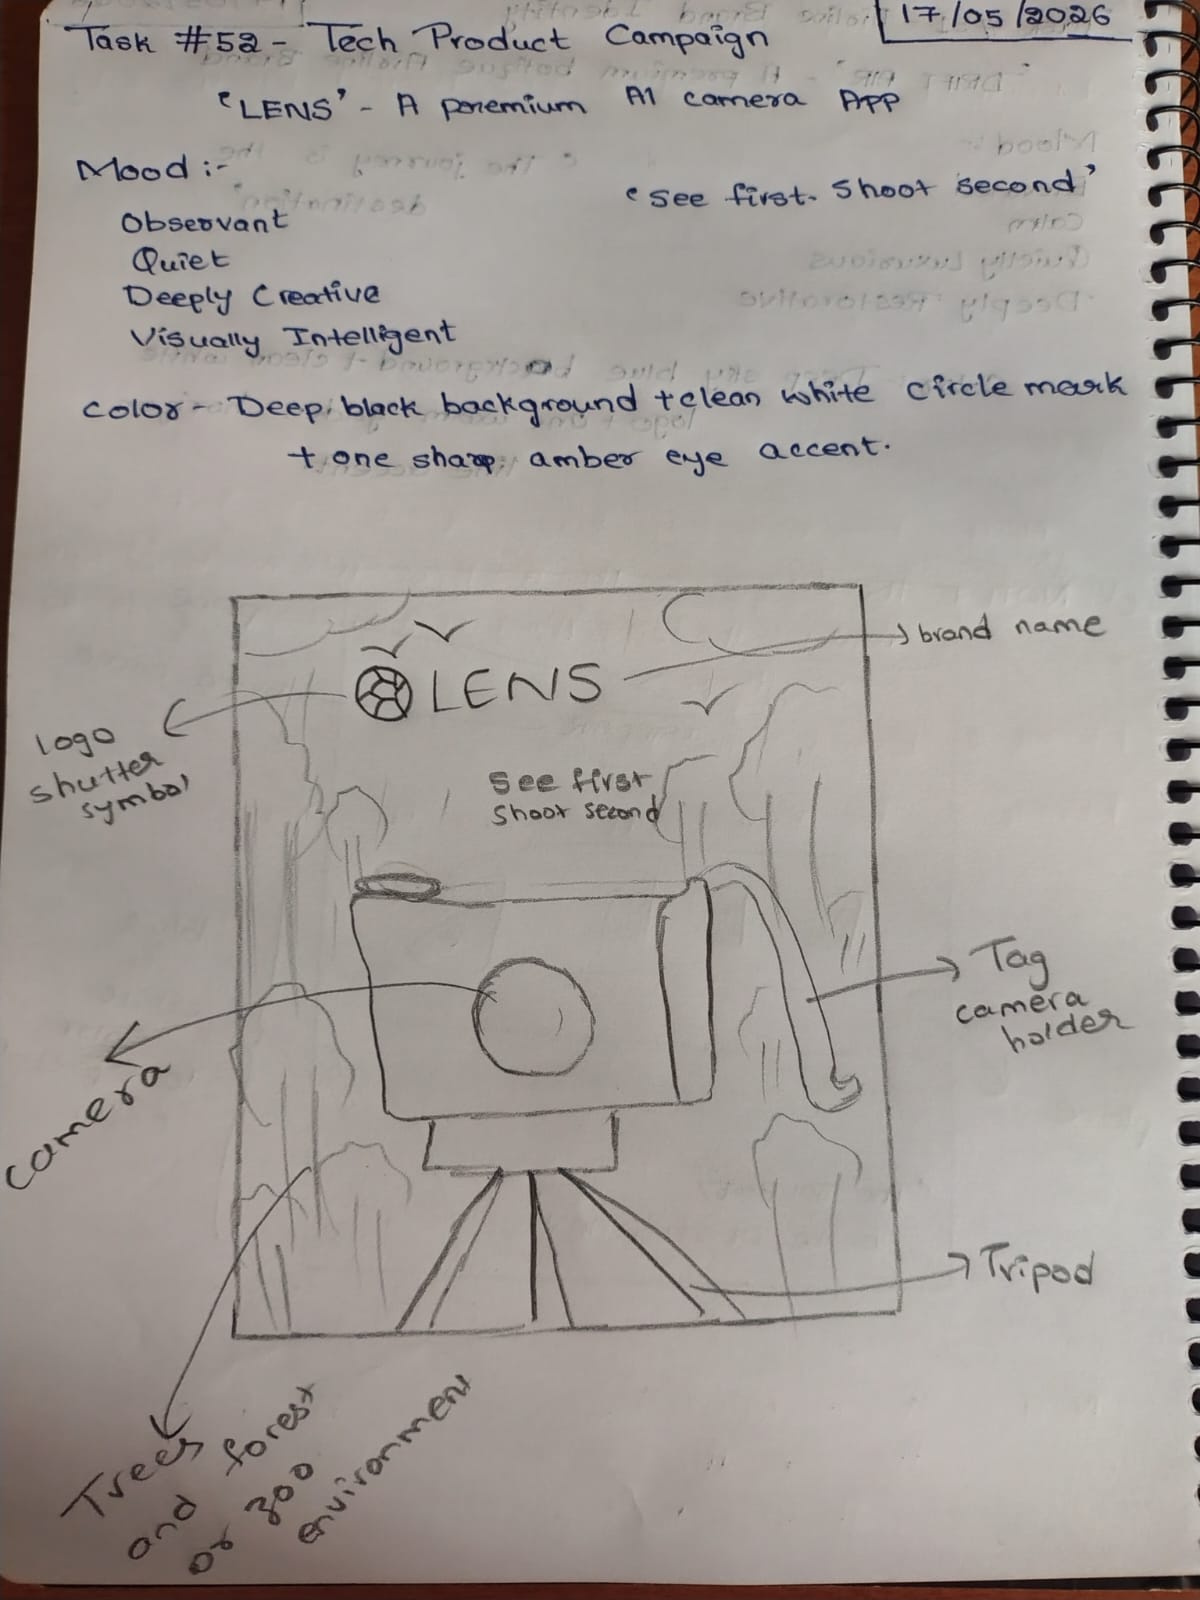 17/05/2026
Task #52 - Tech Product Campaign
'LENS' - A premium AI camera APP
Mood :-
'See first. Shoot second'
Observant
Quiet
Deeply Creative
Visually Intelligent
Color - Deep black background + clean white circle mark
+ one sharp amber eye accent.
brand name
LENS
logo
shutter
symbol
See first
Shoot second
Tag
camera
holder
camera
Tripod
Trees
and forest
or zoo
environment